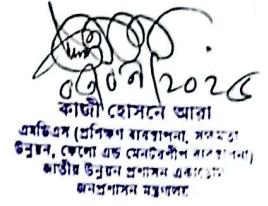 ০৭/০৭/২০২৫
কাজী হোসনে আরা
এমডিএস (প্রশিক্ষণ ব্যবস্থাপনা,
উন্নয়ন, ফেলো এন্ড মেনটরশীপ ব্যবস্থাপনা)
জাতীয় উন্নয়ন প্রশাসন একাডেমি
জনপ্রশাসন মন্ত্রণালয়